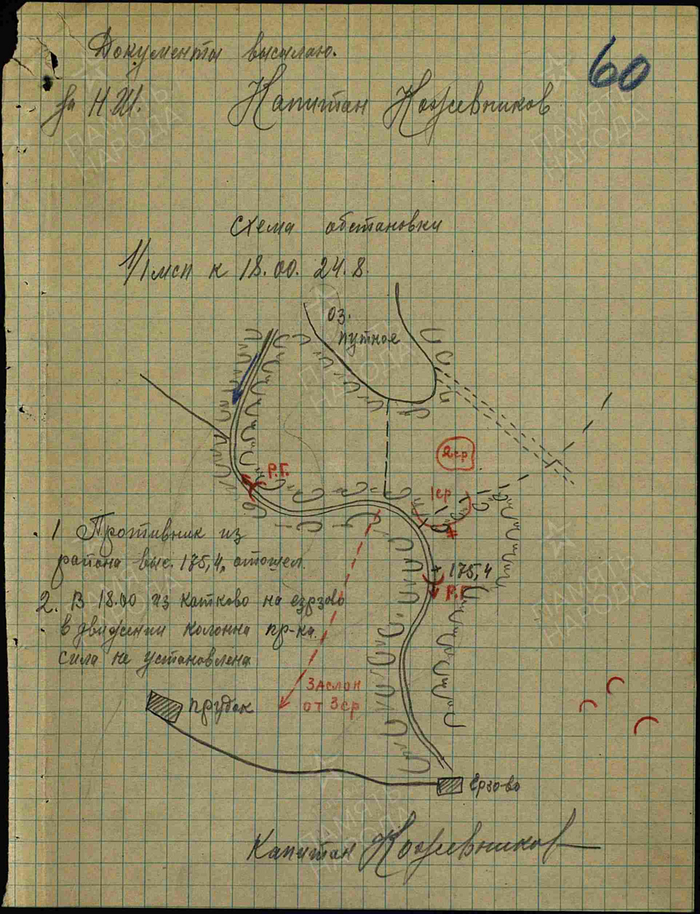 60
Документы высылаю.
За Н.Ш. Капитан Кожевников
Схема обстановки
1/1 мсп к 18.00. 24.8.
оз.
путное
2ср
Р.Г.
1ср
1 Противник из
района выс. 175,4, отошел.
175,4
Р.Г.
2. В 18.00 из Катково на езрзово
в движении колонна пр-ка.
сила не установлена
Заслон
от 3ср
Прудок
Ерзово
Капитан Кожевников
ПАМЯТЬ
НАРОДА